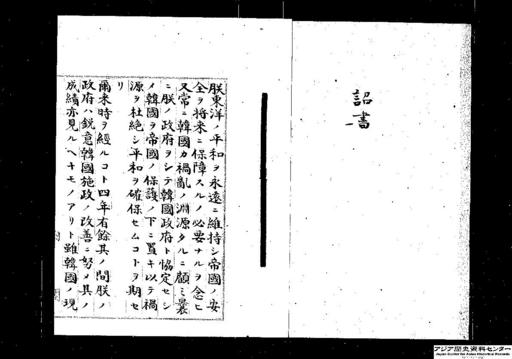 詔書
朕東洋ノ平和ヲ永遠ニ維持シ帝國ノ安
全ヲ将来ニ保障スルノ必要ナルヲ念ヒ
又常ニ韓國カ禍亂ノ淵源タルニ顧ミ曩
ニ朕ノ政府ヲシテ韓國政府ト協定セシ
メ韓國ヲ帝國ノ保護ノ下ニ置キ以テ禍
源ヲ杜絶シ平和ヲ確保セムコトヲ期セ
リ
爾来時ヲ經ルコト四年有餘其ノ間朕ノ
政府ハ鋭意韓國施政ノ改善ニ努メ其ノ
成績亦見ルヘキモノアリト雖韓國ノ現
アジア歴史資料センター
Japan Center for Asian Historical Records